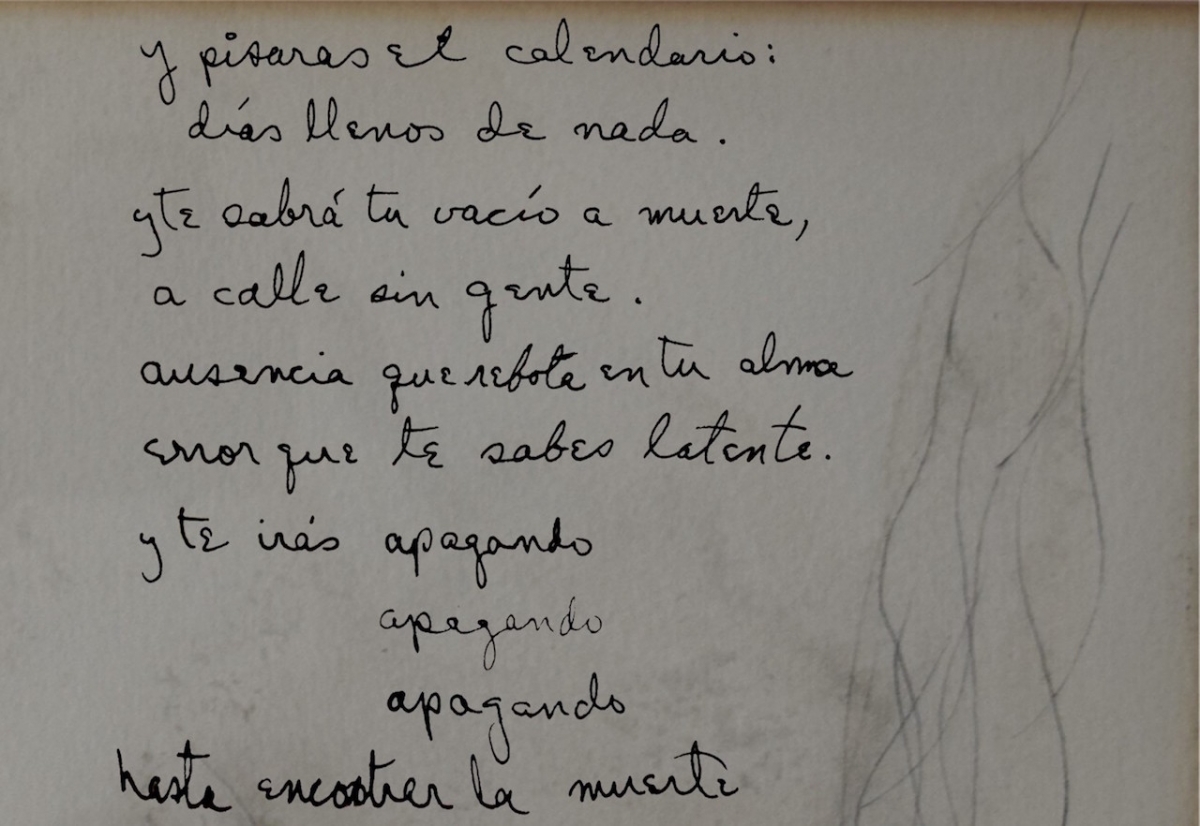 y pisaras el calendario:
días llenos de nada.
y te sabrá tu vacío a muerte,
a calle sin gente.
ausencia que rebota en tu alma
error que te sabes latente.
y te irás apagando
apagando
apagando
hasta encontrar la muerte